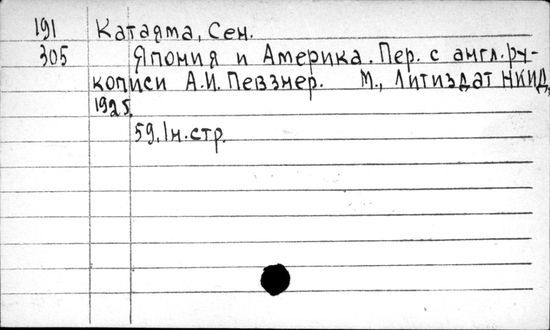 191 Катаяма, Сен.
305 Япония и Америка. Пер. с англ. ру-
кописи А.И. Певзнер. М., Литиздат НКИД,
1925.
59, 1 н. стр.